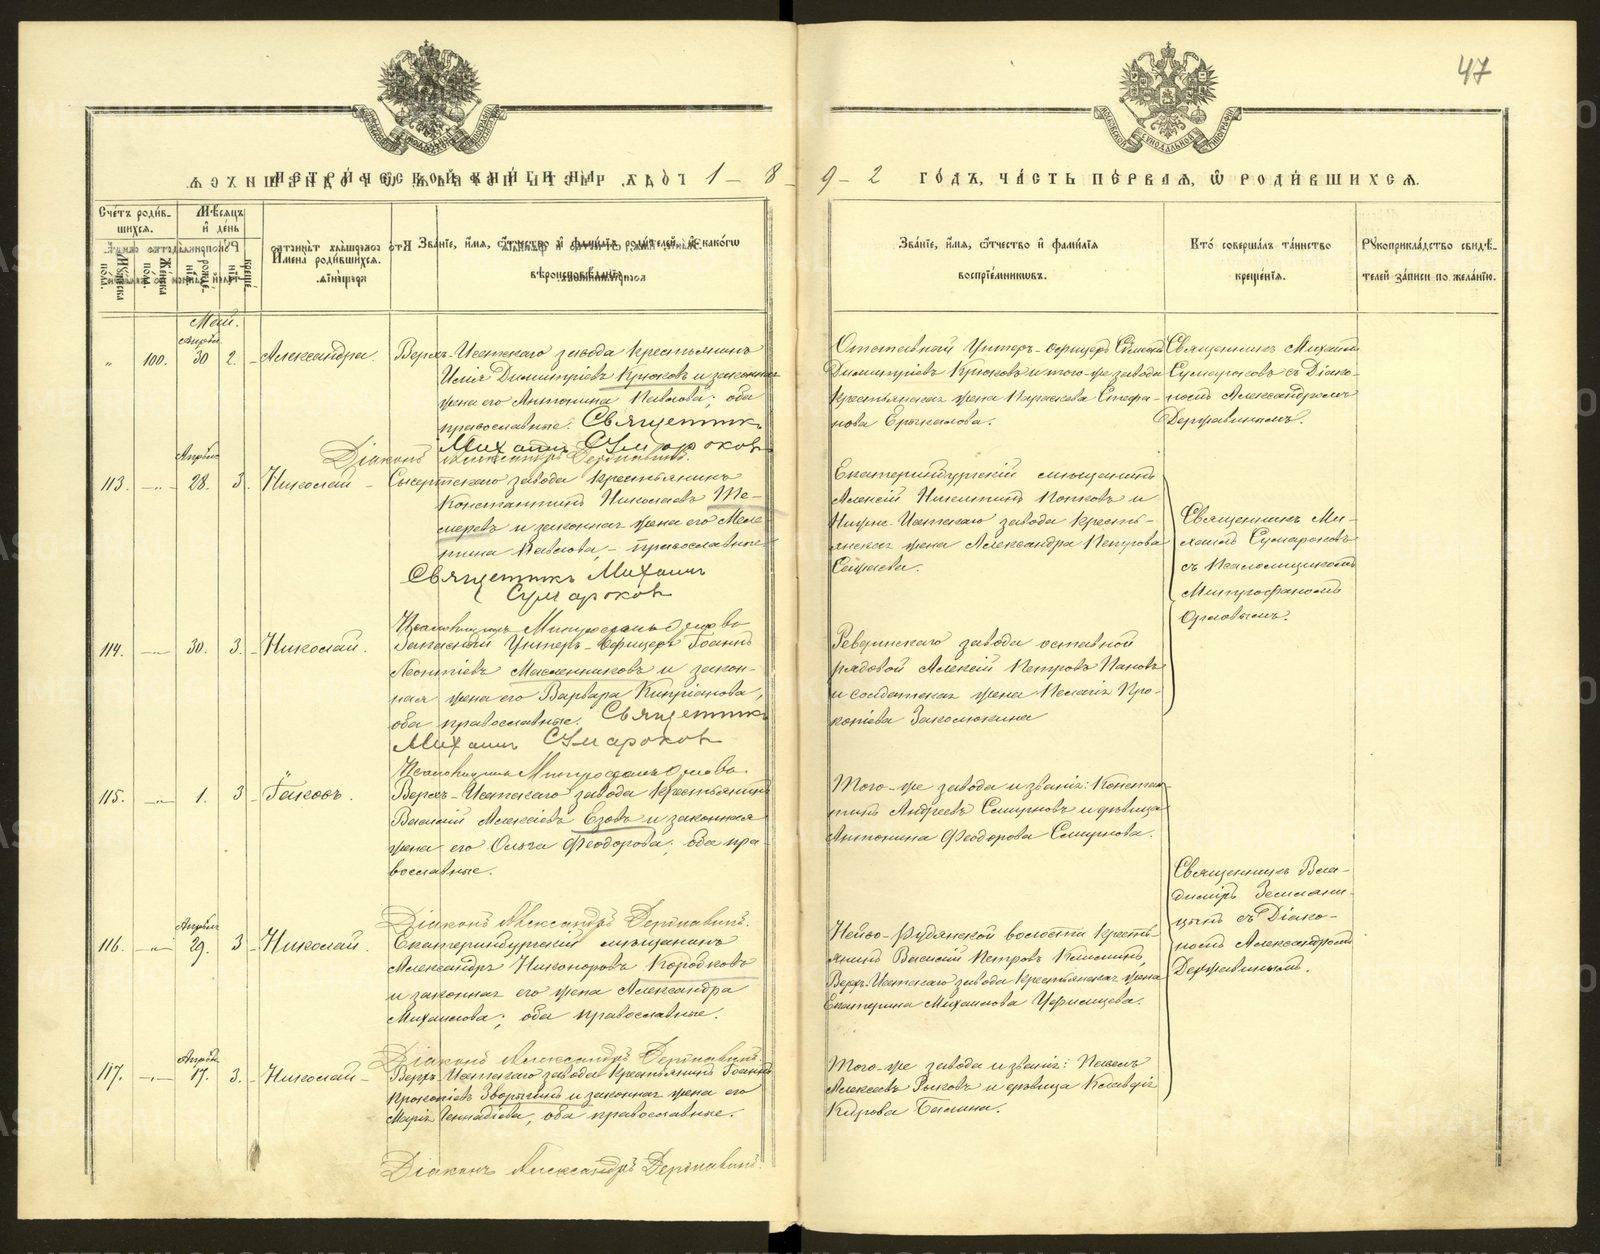 47
МЕТРИЧЕСКОЙ КНИГИ НА 1892 ГОДЪ, ЧАСТЬ ПЕРВАЯ, Ѿ РОДИВШИХСЯ.
Счетъ родив-
шихся.
Мѣсяцъ
и день
Имена родившихся.
Званіе, имя, отчество и фамилія родителей, и какогω
вѣроисповѣданія.
Званіе, имя, ѿчество и фамилія
воспріемниковъ.
Кто совершалъ таинство
крещенія.
Рꙋкоприкладство свидѣ-
телей записи по желанію.
Май.
Апрѣля
„ 100. 30 2. Александра.
Верхъ-Исетскаго завода крестьянинъ
Илія Димитріевъ Крюковъ и законная
жена его Антонина Павлова; оба
православные. Священникъ
Михаилъ Сумароковъ
Діаконъ Александръ Державинъ.
Отставной Унтеръ-офицеръ
Димитріевъ Крюковъ и того-же завода
крестьянская жена Параскева Стефа-
нова
Священникъ Михаилъ
Сумароковъ съ Діако-
номъ Александромъ
Державинымъ.
Апрѣля
113. -„- 28. 3. Николай
Сысертскаго завода крестьянинъ
Константинъ Николаевъ Те-
меревъ и законная жена его
Павлова - православные.
Священникъ Михаилъ
Сумароковъ
Псаломщикъ Митрофанъ Орловъ
Екатеринбургскій мѣщанинъ
Алексій Никитинъ Попковъ и
Нижне-Исетскаго завода кресть-
янская жена Александра Петрова
Священникъ Ми-
хаилъ Сумароковъ
съ Псаломщикомъ
Митрофаномъ
Орловымъ.
114. -„- 30. 3. Николай.
Запасный Унтеръ-Офицеръ Іоаннъ
Леонтіевъ Масленниковъ и закон-
ная жена его Варвара Кипріанова,
оба православные. Священникъ
Михаилъ Сумароковъ
Псаломщикъ Митрофанъ Орловъ.
Ревдинскаго завода оставной
рядовой Алексій Петровъ Пановъ
и солдатская жена Пелагія Про-
копіева Заколюкина
115. -„- 1. 3 Іаковъ.
Верхъ-Исетскаго завода крестьянинъ
Василій Алексіевъ Езовъ и законная
жена его Ольга Феодорова; оба пра-
вославные.
Діаконъ Александръ Державинъ.
Того-же завода и званія: Констан-
тинъ Андреевъ Смирновъ и дѣвица
Антонина Феодорова Смирнова.
Священникъ Вла-
димиръ Земляни-
цынъ съ Діако-
номъ Александромъ
Державинымъ.
Апрѣля
116. -„- 29. 3 Николай.
Екатеринбургскій мѣщанинъ
Александръ Никоноровъ Коробковъ
и законная его жена Александра
Михаилова; оба православные.
Діаконъ Александръ Державинъ.
Нейво-Рудянской волости кресть-
янинъ Василій Петровъ
Верхъ-Исетскаго завода крестьянская жена
Екатерина Михаилова
Апрѣля
117. -„- 17. 3. Николай
Верхъ-Исетскаго завода крестьянинъ Іоаннъ
Прокопіевъ Зворыгинъ и законная жена его
Марія Геннадіева, оба православные.
Діаконъ Александръ Державинъ.
Того-же завода и званія: Павелъ
Алексеевъ Рыковъ и дѣвица Клавдія
Кирова